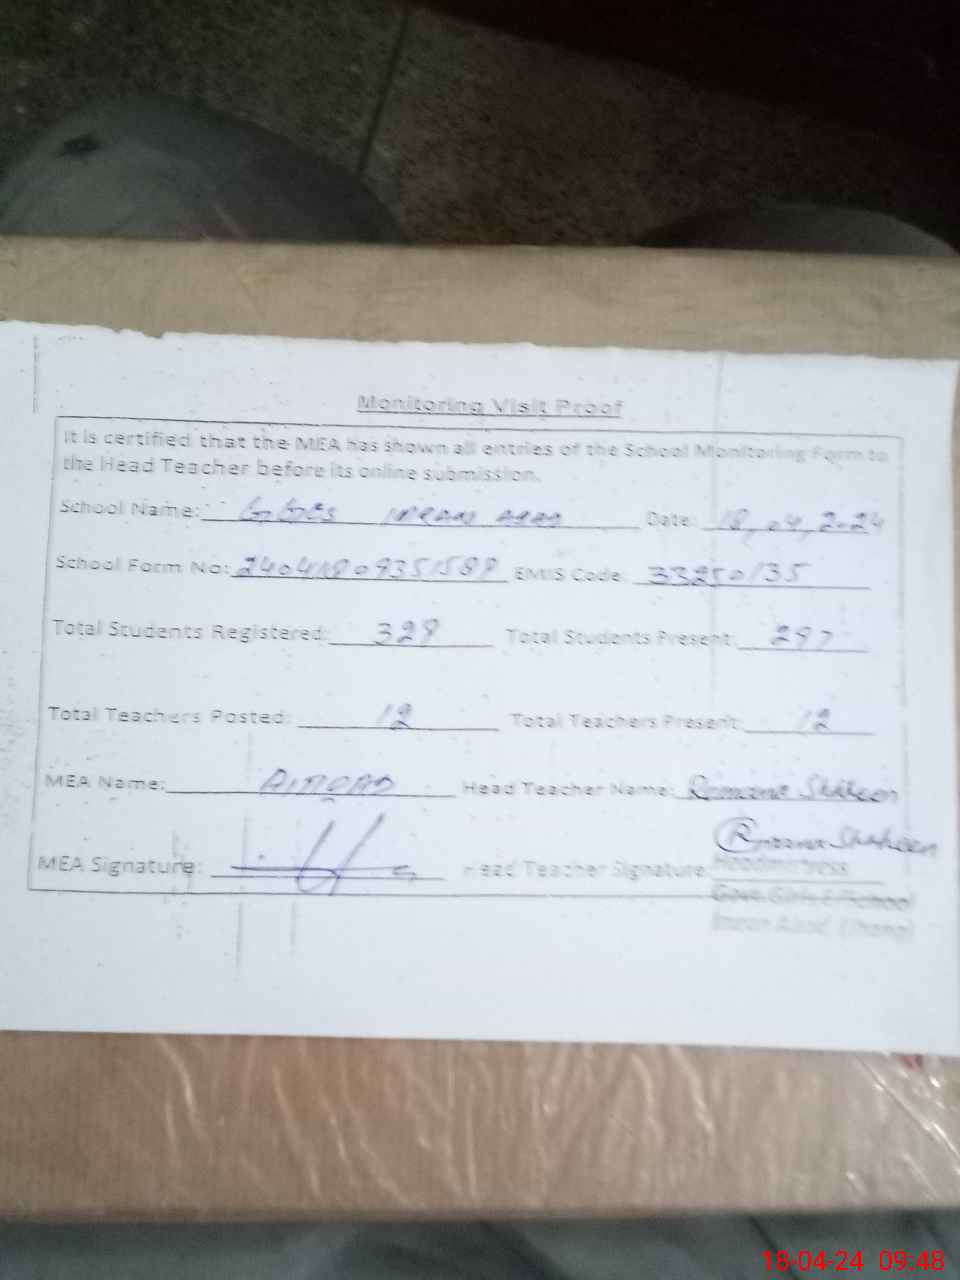 Monitoring Visit Proof
It is certified that the MEA has shown all entries of the School Monitoring Form to
the Head Teacher before its online submission.
School Name: GGES IMRAN ABAD Date: 18,04,2024
School Form No: EMIS Code: 33250135
Total Students Registered: 329 Total Students Present: 297
Total Teachers Posted: 12 Total Teachers Present: 12
MEA Name: Head Teacher Name: Romana Shaheen
Romana Shaheen
MEA Signature: Head Teacher Signature
Headmistress
Govt. Girls E/School
Imran Abad, (Jhang)
18-04-24 09:48